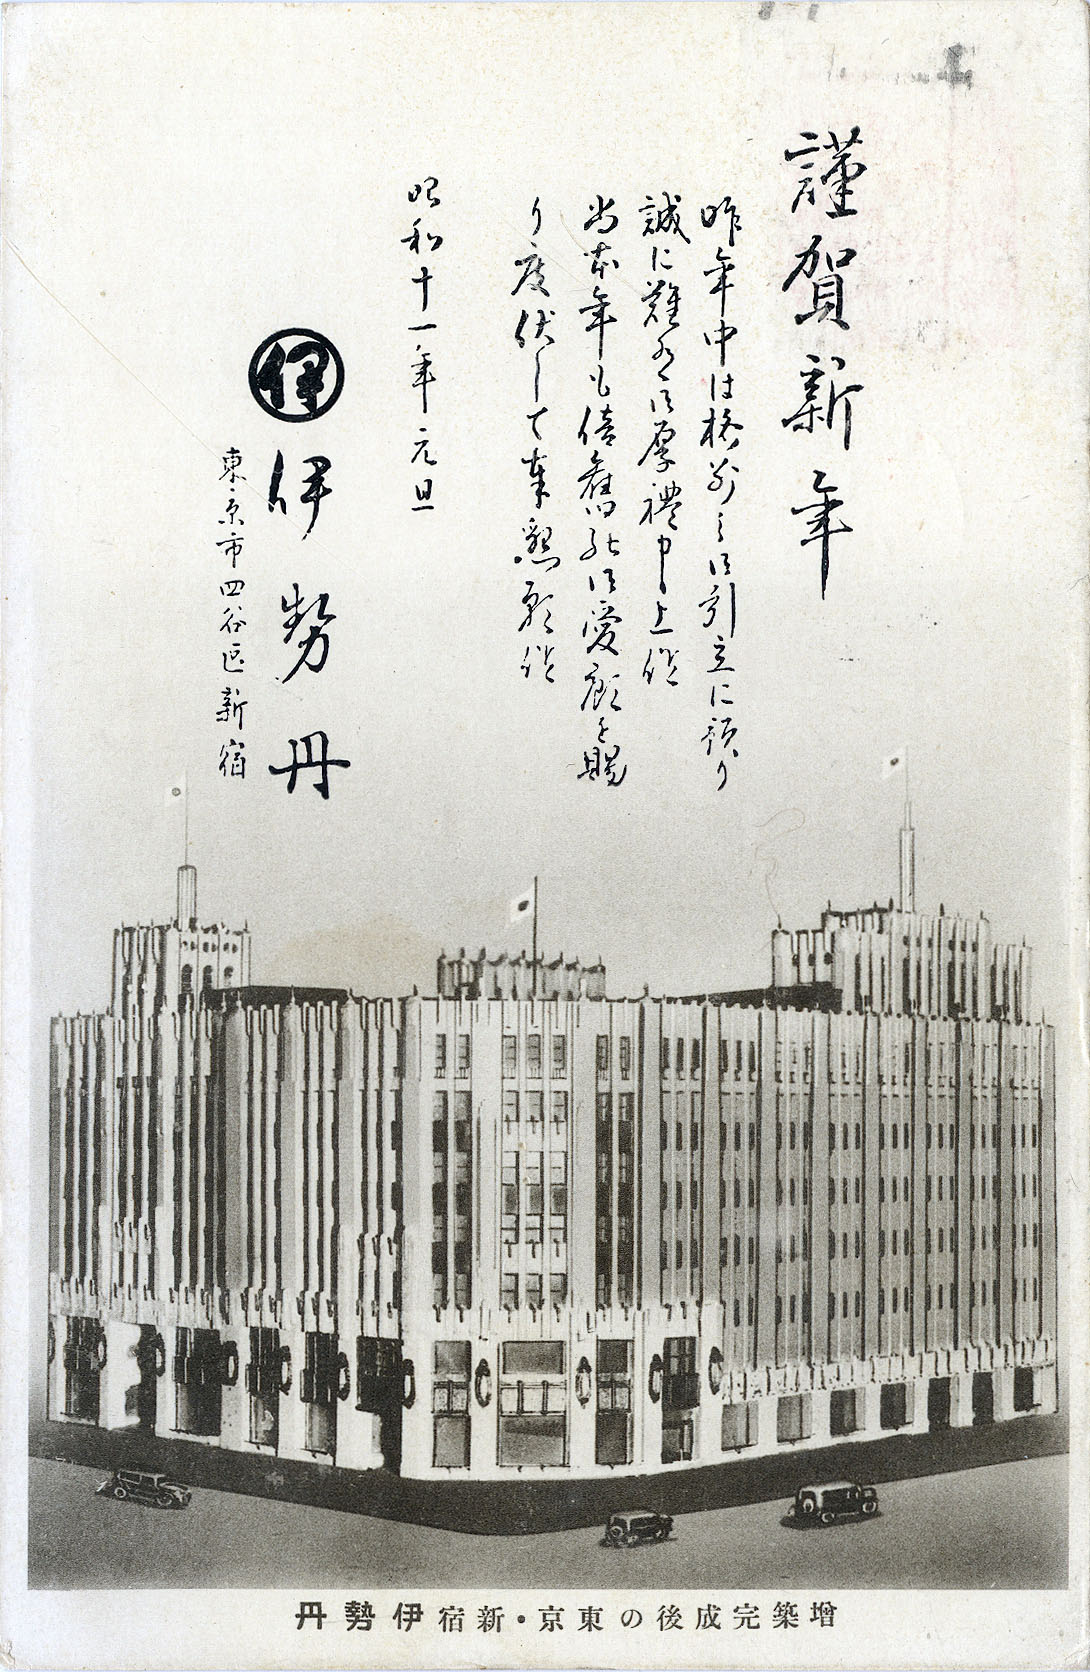 謹賀新年
昨年中は格別之御引立に預り
誠に難有御厚禮申上候
尚本年も倍舊的御愛顧を賜
り度伏して奉懇願候
昭和十一年元旦
伊
伊勢丹
東京市四谷区新宿
増築完成後の東京・新宿伊勢丹